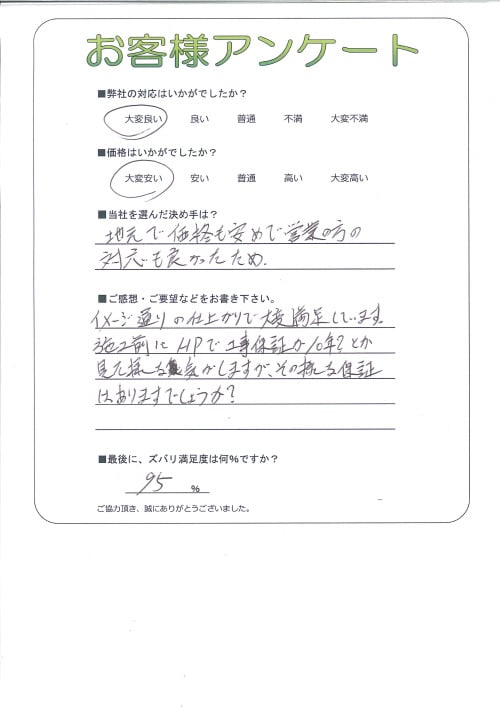 お客様アンケート
■弊社の対応はいかがでしたか？
大変良い 良い 普通 不満 大変不満
■価格はいかがでしたか？
大変安い 安い 普通 高い 大変高い
■当社を選んだ決め手は？
地元で価格も安めで営業の方の
対応も良かったため.
■ご感想・ご要望などをお書き下さい。
イメージ通りの仕上がりで大変満足しています.
施工前にHPで工事保証が10年?とか
見た様な気がしますが、その様な保証
はありますでしょうか?
■最後に、ズバリ満足度は何%ですか？
95 %
ご協力頂き、誠にありがとうございました。